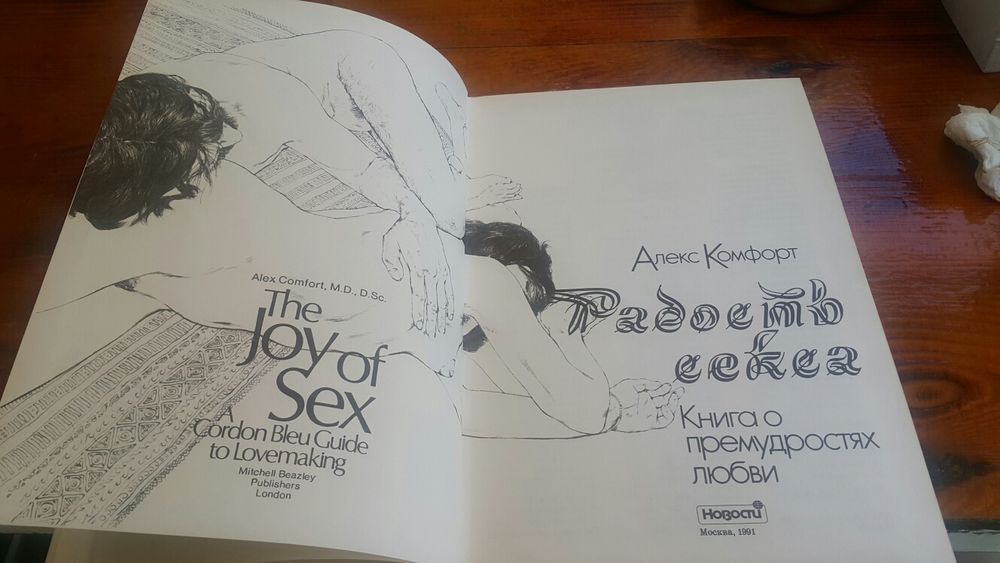 Alex Comfort, M.D., D.Sc.
The
Joy of
Sex
A
Cordon Bleu Guide
to Lovemaking
Mitchell Beazley
Publishers
London
Алекс Комфорт
Радость
секса
Книга о
премудростях
любви
Новости
Москва, 1991